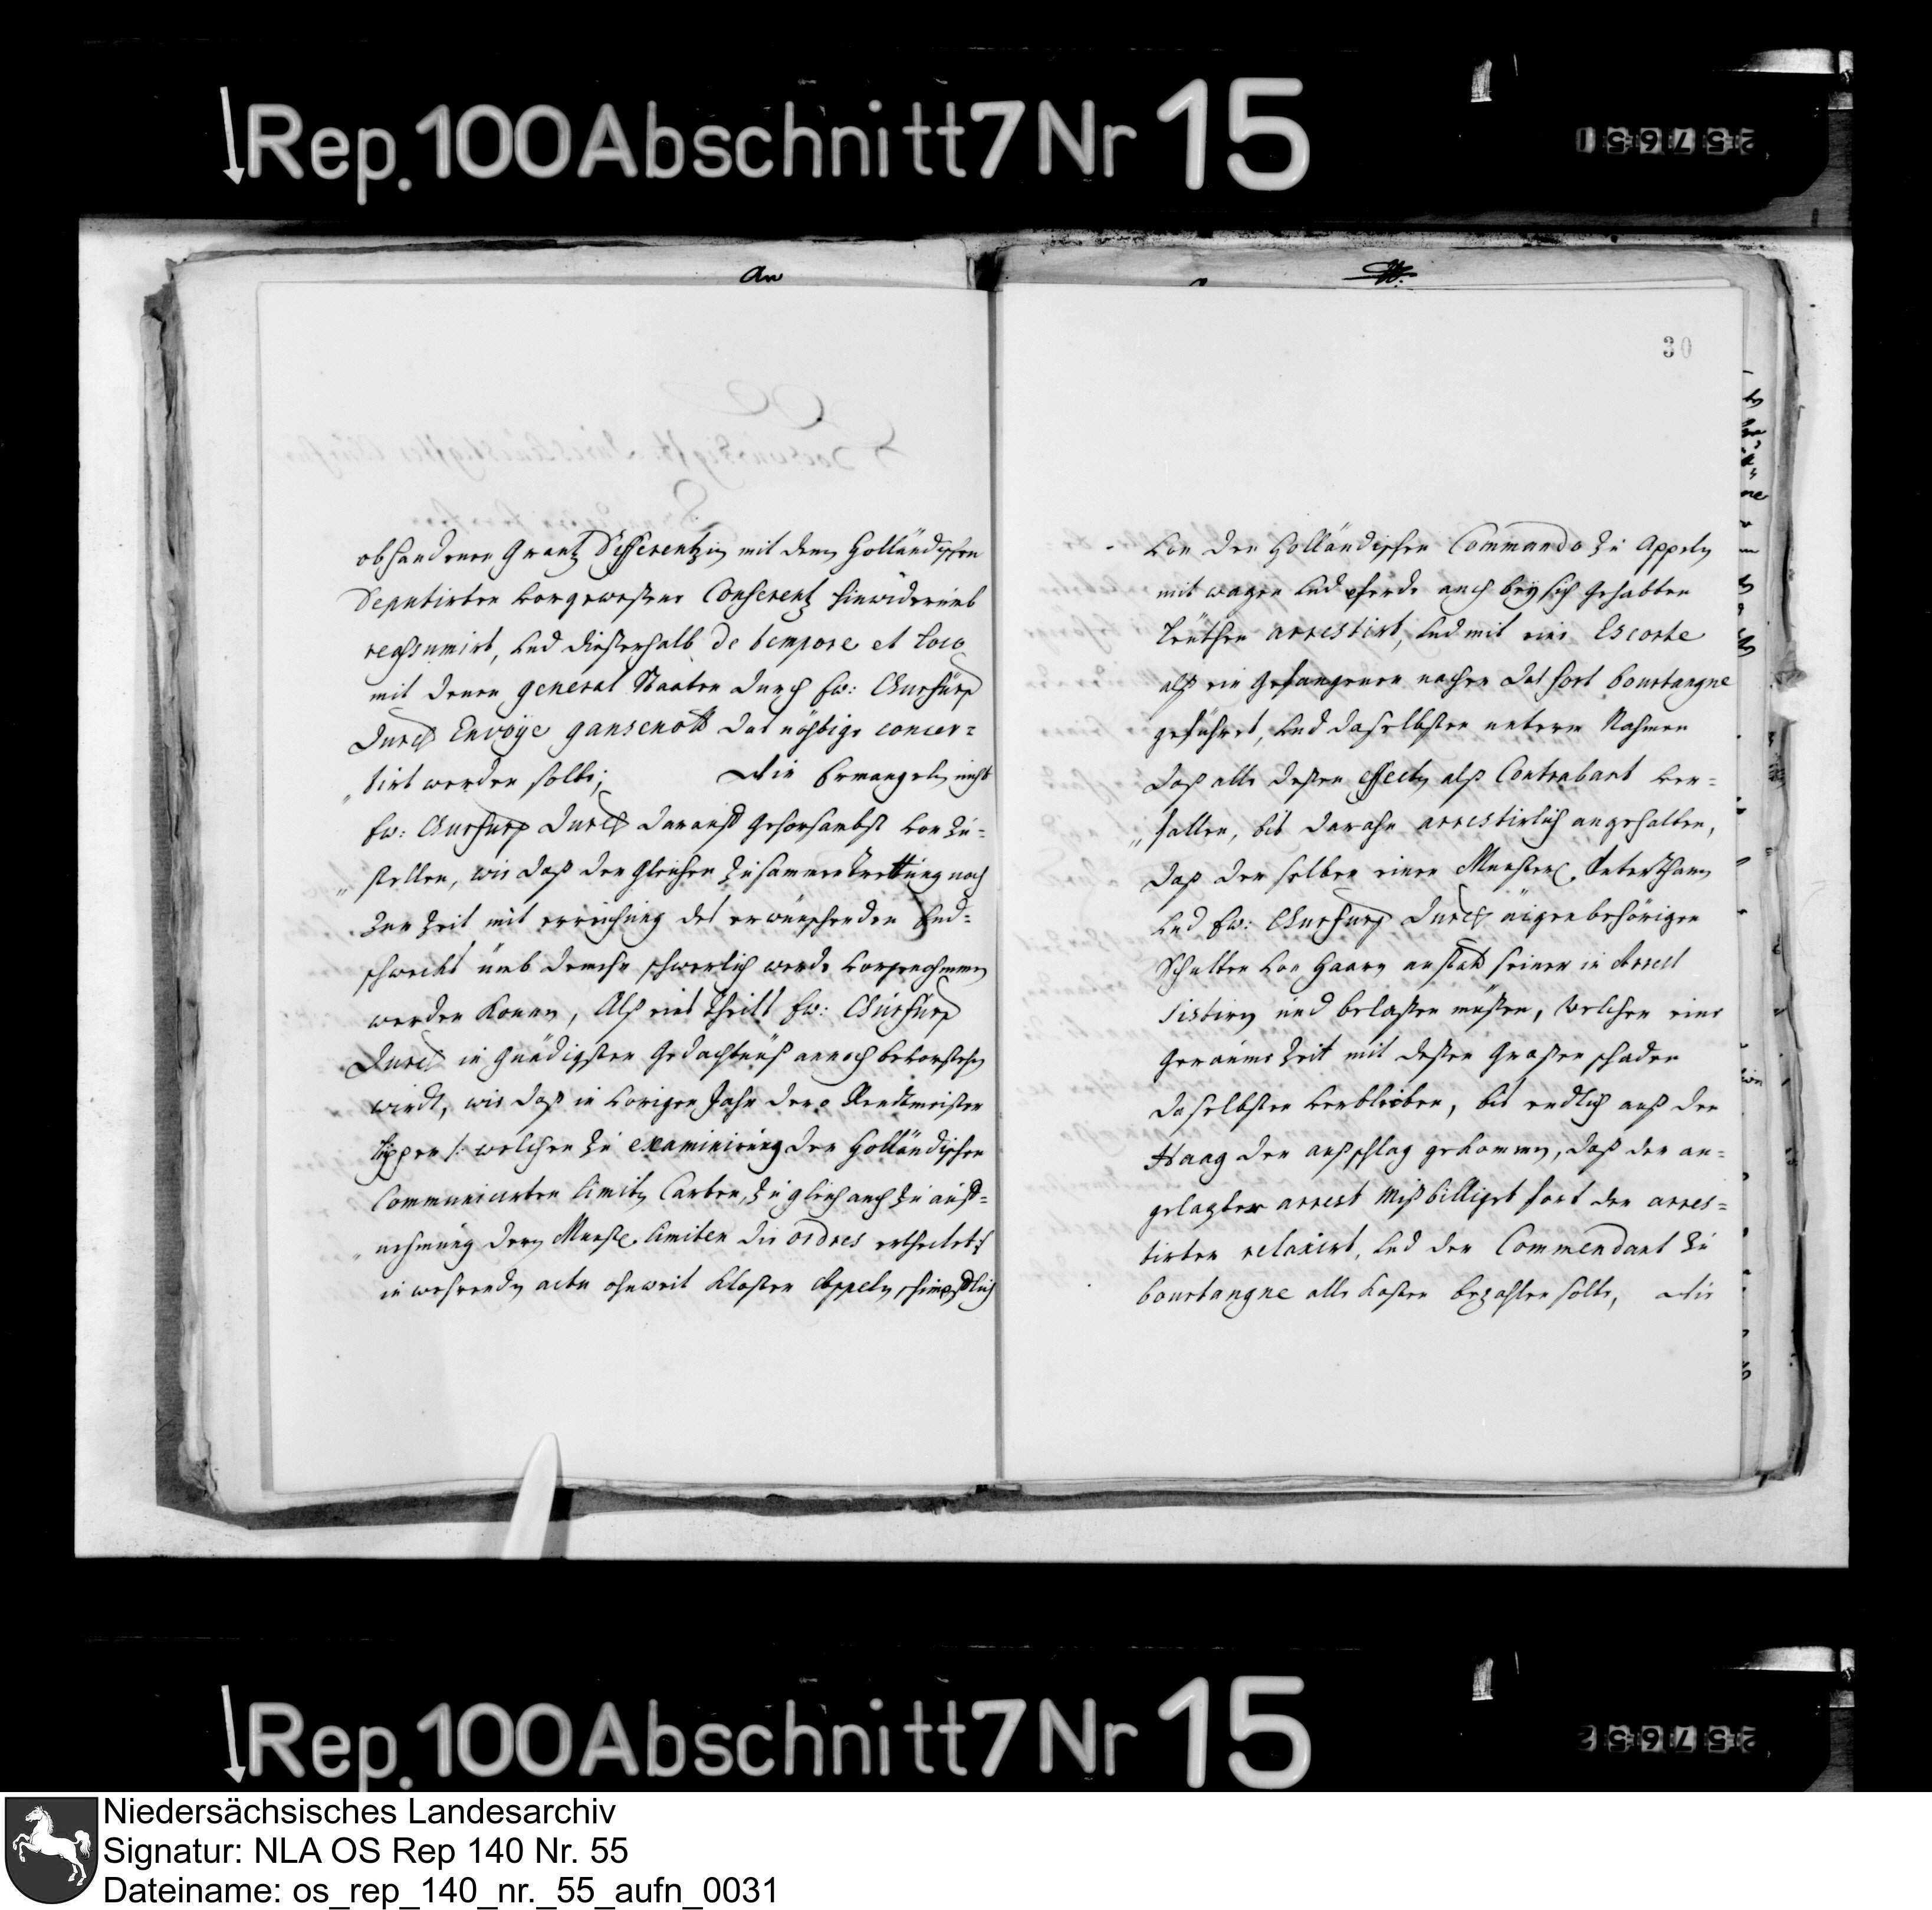 ↓Rep.100Abschnitt7Nr 15
257651
An
30
obhandenen Grantz Differentzien mit denen Holländischen
Deputirten vorgewesene Conferentz hinwiderumb
reassumirt, und diesterhalb de tempore et loco
mit denen general Staaten durch Ew: Churfürst
Durchl Envoÿe gansenott das nöhtige concer=
tirt werden solle; Wie Ermangelen nicht
Ew: Churfurst Durchl darauff gehorsambst vor zu=
stellen, wie daß der gleichen Zusammentrettung noch
Zur Zeit mit erreichung des erwünschenden End=
schwecks umb demehr schwerlich werde vorgenohmen
werden Können, Alß eines theils Ew: Churfürst
Durchl in gnädigsten Gedachtnüß annoch bevorstehen
wirdt, wie daß in vorigen Jahr der Rendtmeister
Lippen /: welcher zu examinirung der Holländischen
Communicirten limiten Carten, zugleich auch zu auff=
nehmung deren Munster limiten die ordres ertheilet :/
in wehrenden actu ohnweit Closter Appelen schimpflich
von den Holländischen Commando zu Appelen
mit wagen und pferde auch beÿ sich gehabten
Leuthen arrestirt, und mit eine Escorte
alß ein gefangenen nacher das fort bourtangne
geführet, und daselbsten unterm Nahmen
daß alle dessen effecten alß Contrabant ver=
fallen, bis darahn arrestirlich angehalten,
daß derselbe einen Munster. Unterthanen
und Ew: Churfurst Durchl äigenbehörigen
Schulten von Haaren anstatt seiner in Arrest
sistiren und belassen müssen, welcher eine
geraume Zeit mit dessen grossen schaden
daselbsten verblieben, bis endlich auß den
Haag der außschlag gekommen, daß der an=
gelagter arrest mißbilliget fort der arres=
tirter relaxirt, und der Commendant zu
bourtangne alle Kosten bezahlen solle, Wie
↓Rep.100Abschnitt7Nr 15
257652
Niedersächsisches Landesarchiv
Signatur: NLA OS Rep 140 Nr. 55
Dateiname: os_rep_140_nr._55_aufn_0031